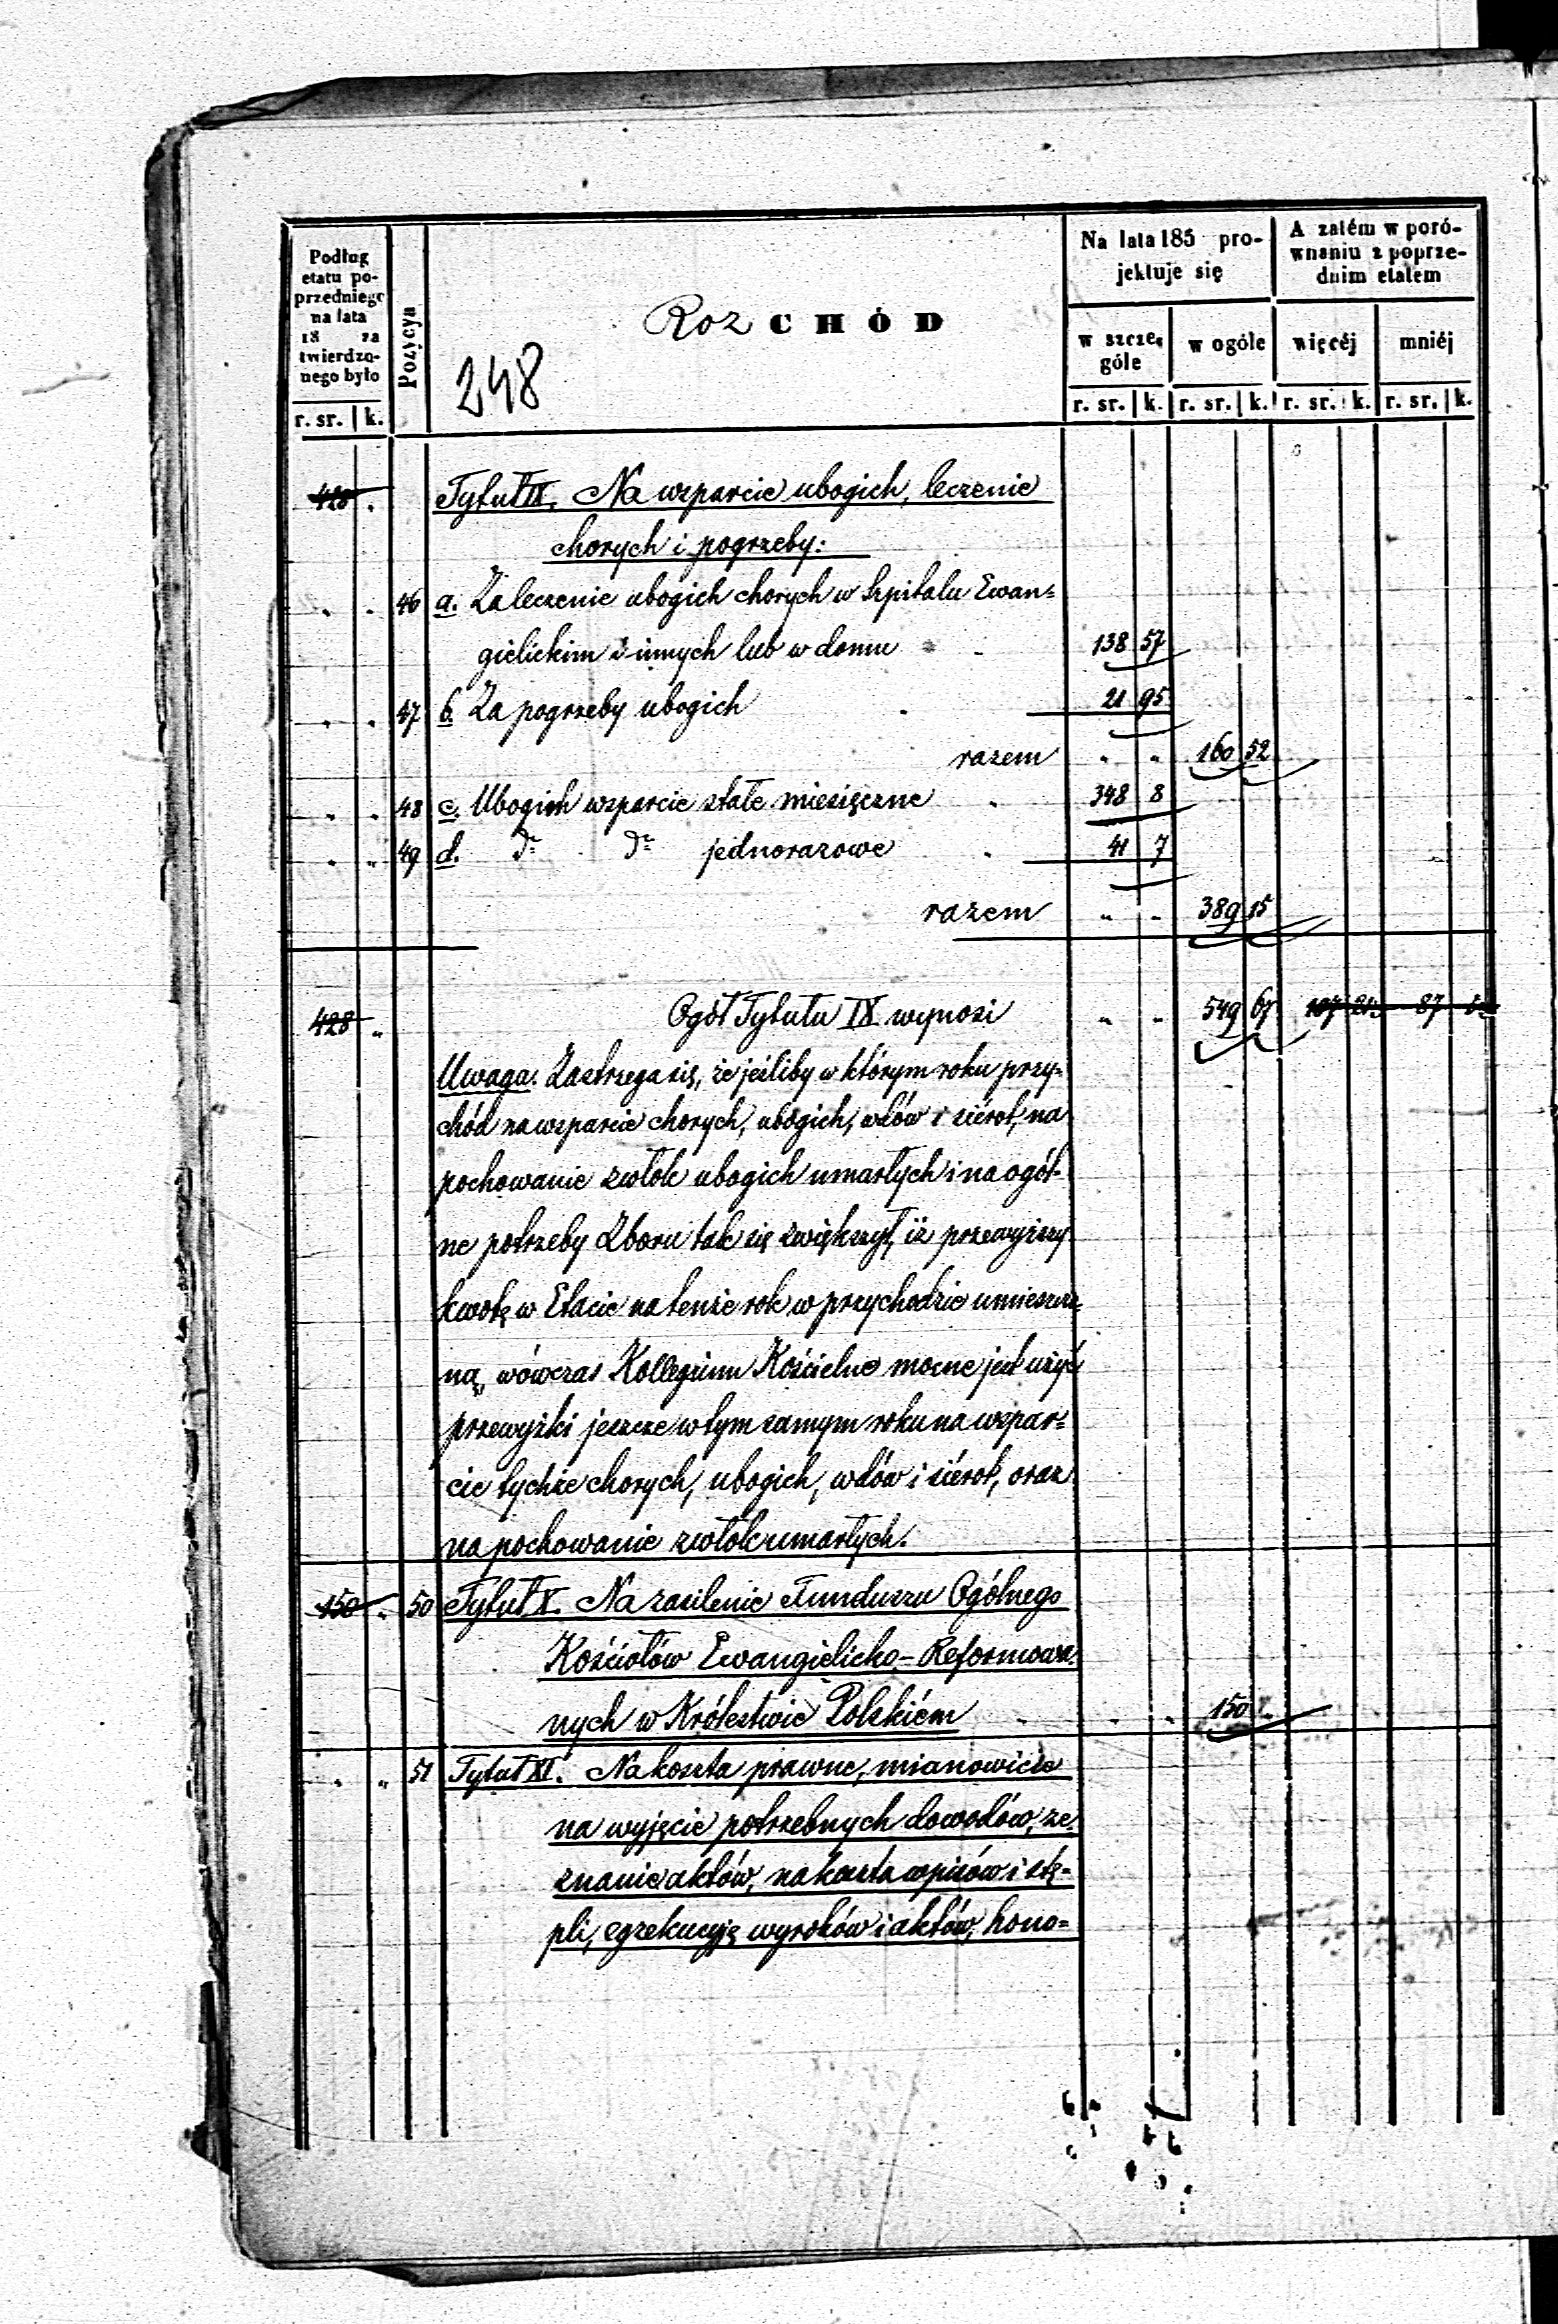 Podług etatu poprzedniego na lata 18 zatwierdzonego było
Pozycya
Roz CHÓD
Na lata 185 projektuje się
A zatém w porównaniu z poprzednim etatem
w szczególe
w ogóle
więcéj
mniéj
r. sr. k.
r. sr. k. r. sr. k. r. sr. k. r. sr. k.
248
428 . Tytuł IX. Na wsparcie ubogich, leczenie
chorych i pogrzeby:
" . 46 a. Za leczenie ubogich chorych w Szpitalu Ewan=
gielickim i innych lub w domu 138 57
" . 47 b. Za pogrzeby ubogich 21 95
razem " " 160 52
" . 48 c. Ubogich wsparcie stałe miesięczne 348 8
" " 49 d. do do jednorazowe 41 7
razem " " 389 15
428 " Ogół Tytułu IX wynosi " " 549 67 107 87
Uwaga. Zastrzega się, że jeśliby w którym roku przy=
chód na wsparcie chorych, ubogich, wdów i siérot, na
pochowanie zwłok ubogich umarłych i na ogól-
ne potrzeby Zboru tak się zwiększył, iż przewyższy
kwotę w Etacie na tenże rok w przychodzie umieszczo=
ną, wówczas Kollegium Kościelne mocne jest użyć
przewyżki jeszcze w tym samym roku na wspar=
cie tychże chorych, ubogich, wdów i siérot, oraz
na pochowanie zwłok umarłych.
150 . 50 Tytuł X. Na zasilenie Funduszu Ogólnego
Kościołów Ewangielicko-Reformowa=
nych w Królestwie Polskiém " " 150 "
" " 51 Tytuł XI. Na koszta prawne, mianowicie
na wyjęcie potrzebnych dowodów, ze=
znanie aktów, na koszta wpisów i stę=
pli, egzekucyję wyroków i aktów, hono=